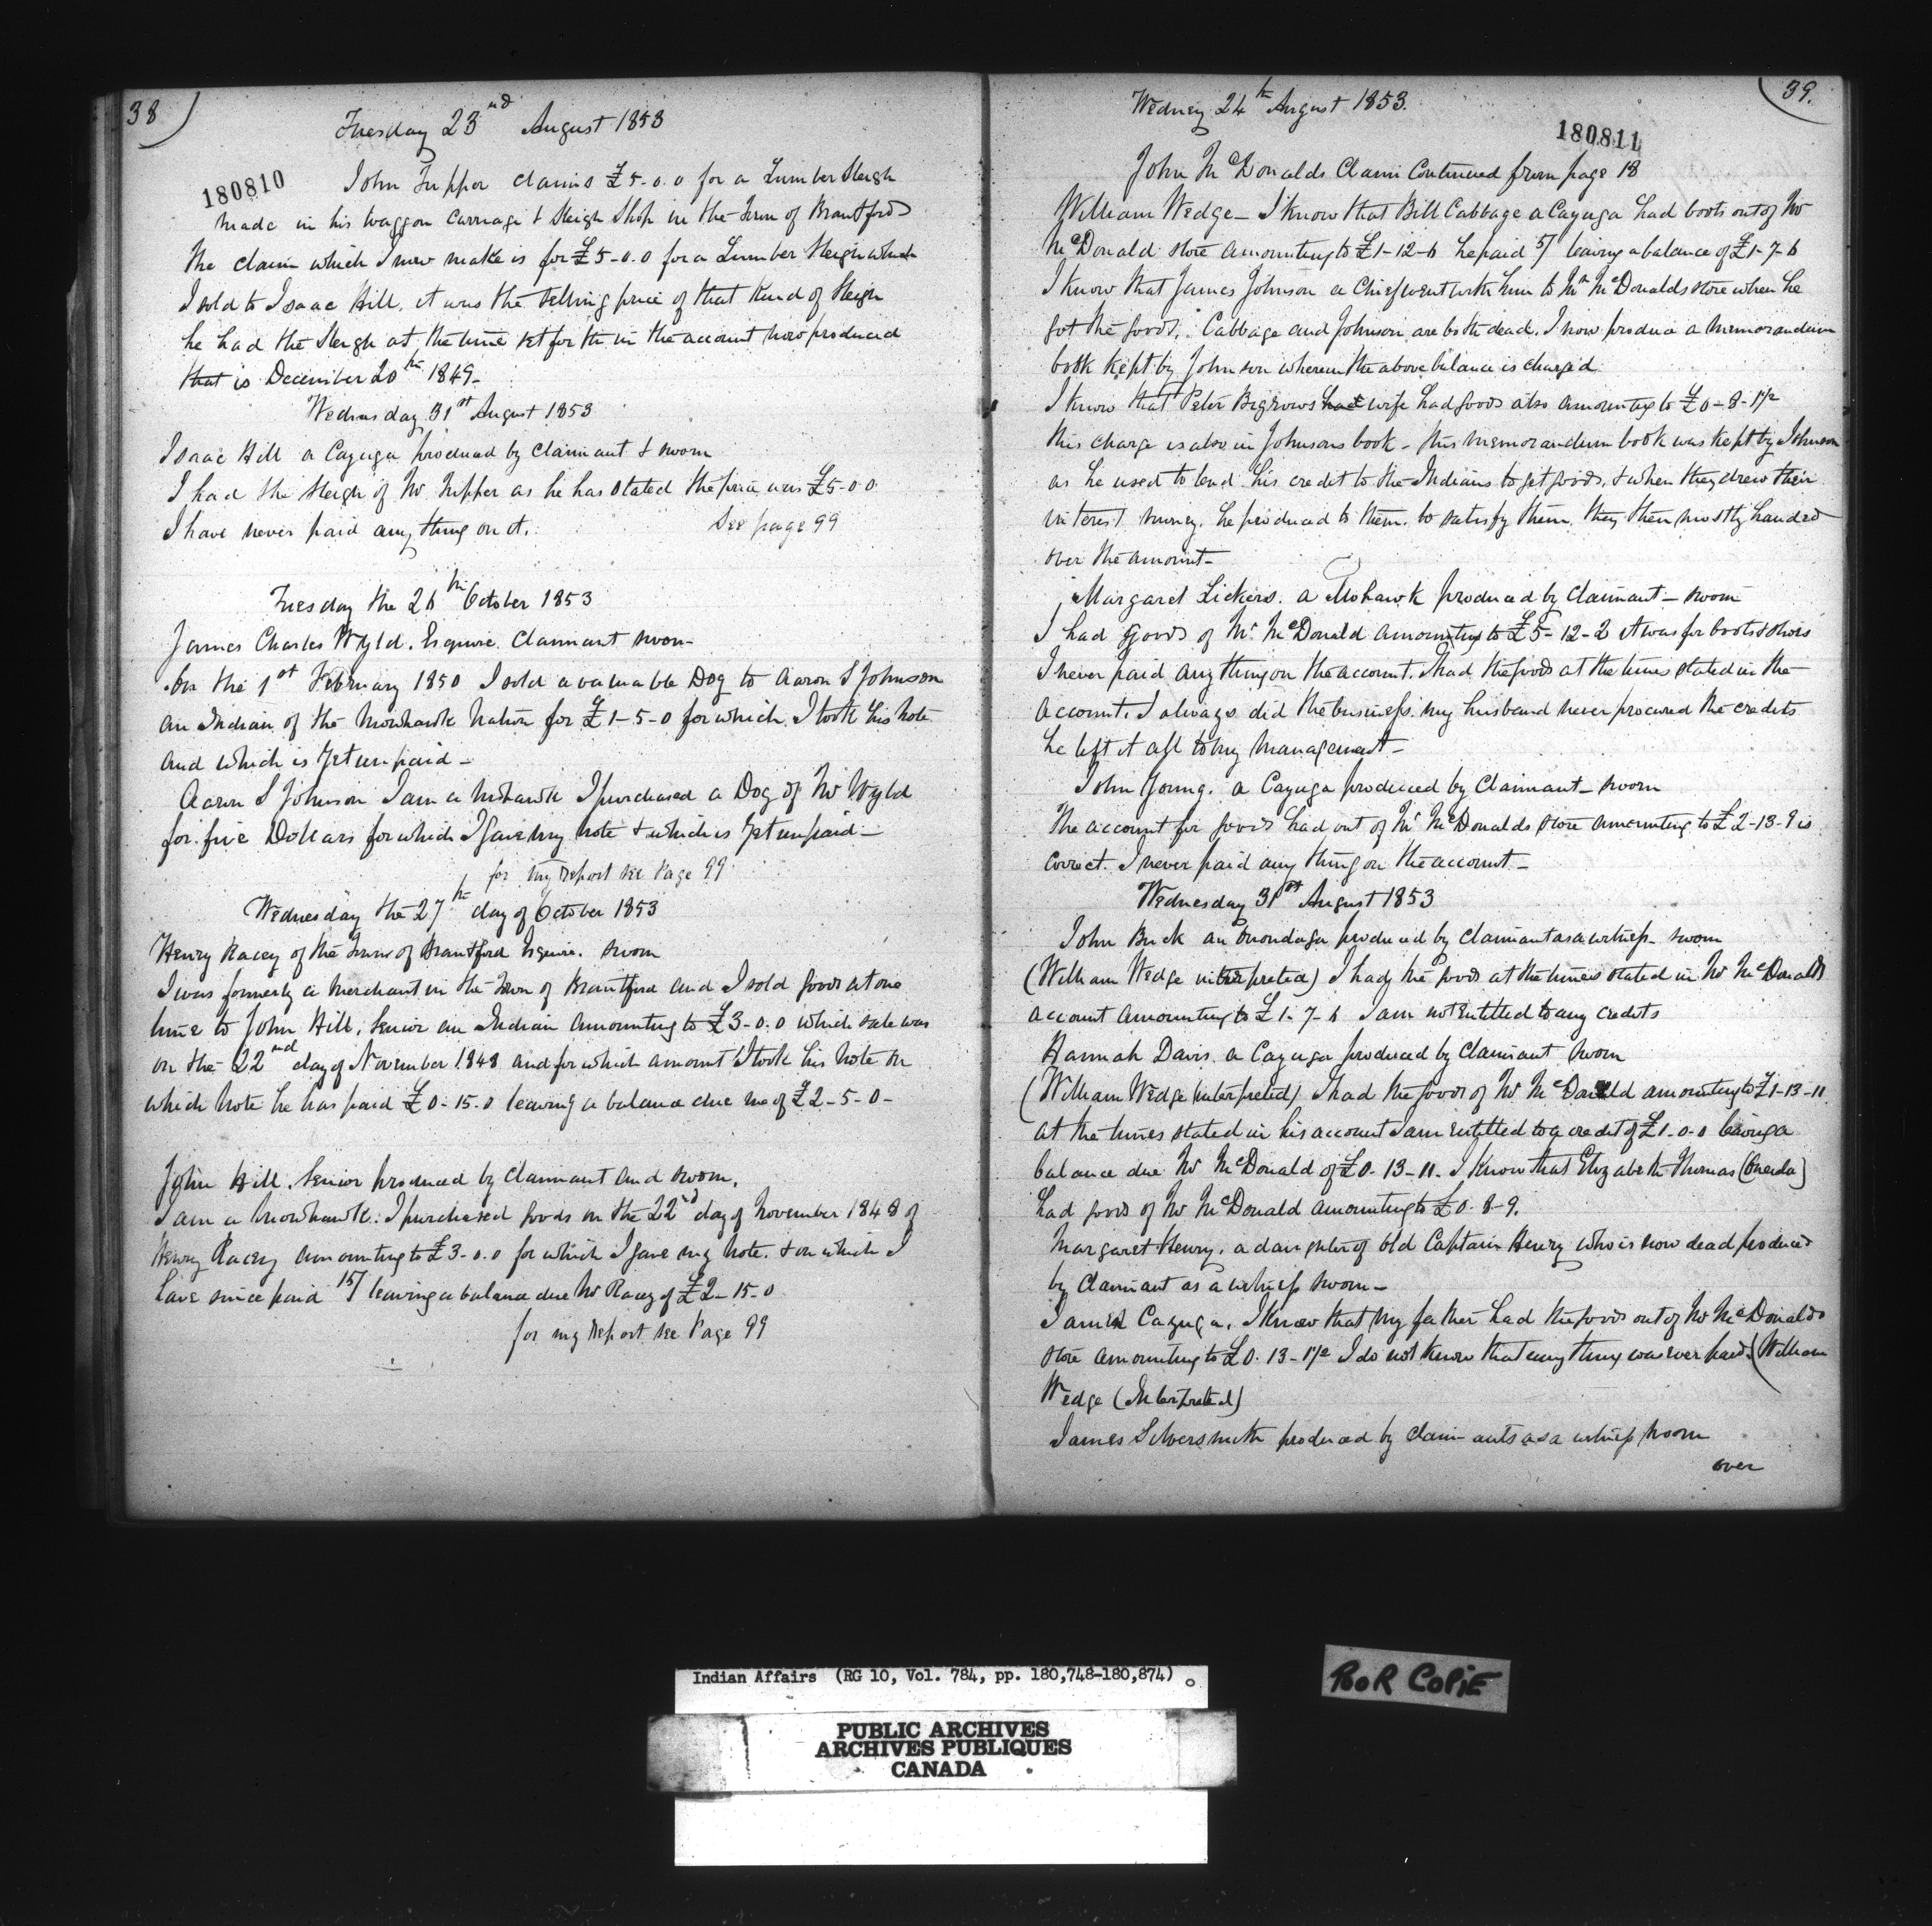 38
Tuesday 23nd August 1853
180810
John Tupper claims £5-0.0 for a Lumber Sleigh
made in his waggon carriage & Sleigh Shop in the Town of Brantford
The claim which I now make is for £5-0.0 for a Lumber Sleigh which
I sold to Isaac Hill. it was the selling price of that Kind of Sleigh
he had the Sleigh at the time set forth in the account now produced
that is December 20th 1849-
Wednesday 31st August 1853
Isaac Hill a Cayuga produced by Claimant & sworn
I had the sleigh of Mr. Tupper as he has stated the price was £5-0 0
I have never paid any thing on it. See page 99
Tuesday the 26th October 1853
James Charles Wyld. Esquire. Claimant sworn-
On the 1st February 1850 I sold a valuable Dog to Aaron S Johnson
an Indian of the Mowhawk Nation for £1-5-0 for which I took his Note
and which is yet unpaid-
Aaron S Johnson I am a Mohawk I purchased a Dog of Mr Wyld
for five Dollars for which I gave my note & which is yet unpaid-
for my report see Page 99
Wednesday the 27th day of October 1853
Henry Racey of the Town of Brantford Esquire. sworn
I was formerly a Merchant in the Town of Brantford and I sold goods at one
time to John Hill, Senior an Indian amounting to £3-0.0 which sale was
on the 22nd day of November 1848 and for which amount I took his Note on
which Note he has paid £0-15.0 leaving a balance due me of £2-5-0-
John Hill. Senior produced by Claimant and sworn.
I am a Mowhawk. I purchased goods on the 22nd day of November 1848 of
Henry Racey amounting to £3-0.0 for which I gave my Note. & on which I
have since paid 15/ leaving a balance due Mr Racey of £2-15-0
for my report see Page 99
39.
Wedney 24th August 1853.
180811
John McDonalds Claim Continued from page 18
William Wedge- I Know that Bill Cabbage a Cayuga had boots out of Mr
McDonald store amounting to £1-12-6 he paid 5/ leaving a balance of £1-7-6
I Know that James Johnson a Chief went with him to Mr McDonalds store when he
got the goods. Cabbage and Johnson are both dead. I now produce a memorandum
book kept by Johnson wherein the above balance is charged.
I know that Peter Bigrows had wife had goods also amounting to £0-8-1½
this charge is also in Johnsons book- this memorandum book was kept by Johnson
as he used to lend his credit to the Indians to get goods, & when they drew their
interest money. he produced to them. to satisfy them. they then mostly handed
over the amount-
Margaret Lickers. a Mohawk produced by Claimant- sworn
I had goods of Mr. McDonald amounting to £5-12-2 it was for boots & shoes
I never paid any thing on the account. I had the goods at the times stated in the
account. I always did the business. my husband never procured the credits
he left it all to my management-
John Young. a Cayuga produced by Claimant- sworn
The account for goods had out of Mr McDonalds store amounting to £2-13-9 is
correct. I never paid any thing on the account-
Wednesday 31st August 1853
John Buck an Onondaga produced by Claimant as a witness- sworn
(William Wedge interpreted) I had the goods at the times stated in Mr McDonalds
account amounting to £1-7-6 I am not entitled to any credits
Hannah Davis. a Cayuga produced by Claimant sworn
(William Wedge interpreted) I had the goods of Mr McDonald amounting to £1-13-11
at the times stated in his account I am entitled to a credit of £1-0-0 leaving a
balance due Mr McDonald of £0-13-11. I know that Elizabeth Thomas (Oneida)
had goods of Mr McDonald amounting to £0-8-9.
Margaret Henry. a daughter of old Captain Henry who is now dead produced
by Claimant as a witness sworn-
I am a Cayuga. I know that my father had the goods out of Mr McDonalds
store amounting to £0.13-1½ I do not know that any thing was ever paid. (William
Wedge (Interpreted)
James Silversmith produced by claimants as a witness sworn
over
Indian Affairs (RG 10, Vol. 784, pp. 180,748-180,874)
POOR COPIE
PUBLIC ARCHIVES
ARCHIVES PUBLIQUES
CANADA